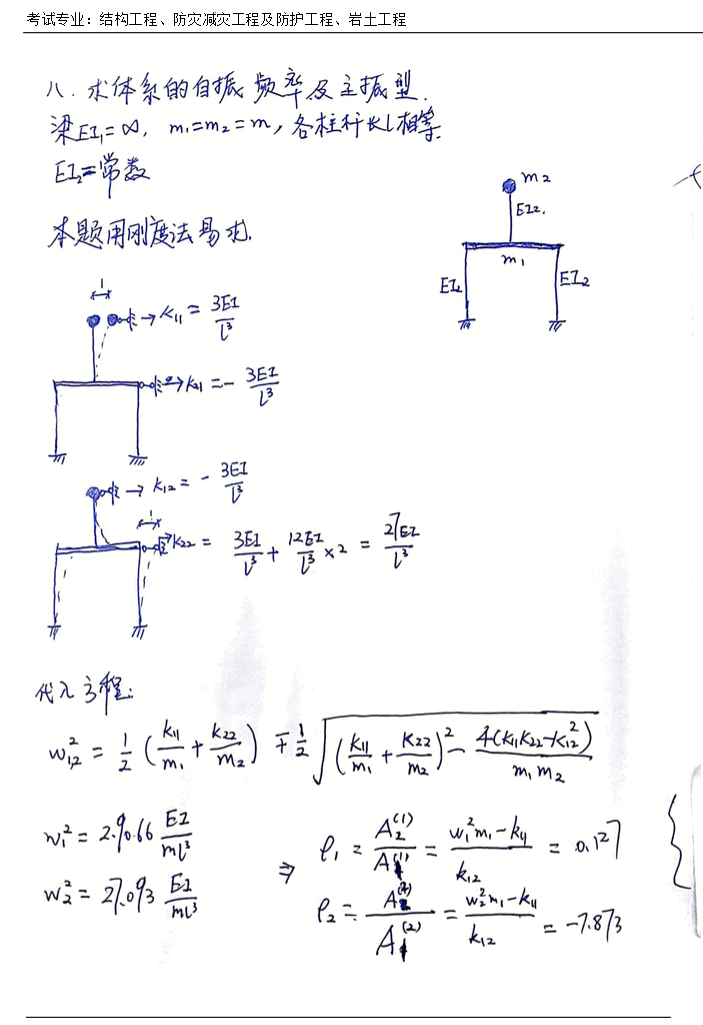 考试专业：结构工程、防灾减灾工程及防护工程、岩土工程
八. 求体系的自振频率及主振型.
梁EI₁=∞, m₁=m₂=m, 各柱杆长l相等.
EI₂=常数
m₂
EI₂.
m₁
EI₂
EI₂
本题用刚度法易求.
1
→ k₁₁ = 3EI/l³
→ k₂₁ = - 3EI/l³
→ k₁₂ = - 3EI/l³
1
k₂₂ = 3EI/l³ + 12EI/l³ ×2 = 27EI/l³
代入方程:
w²₁,₂ = 1/2 (k₁₁/m₁ + k₂₂/m₂) ∓ 1/2 √((k₁₁/m₁ + k₂₂/m₂)² - 4(k₁₁k₂₂-k₁₂²)/m₁m₂)
w₁² = 2.9066 EI/ml³
w₂² = 27.093 EI/ml³
⇒ ρ₁ = A₂⁽¹⁾/A₁⁽¹⁾ = w₁²m₁-k₁₁/k₁₂ = 0.127
ρ₂ = A₂⁽²⁾/A₁⁽²⁾ = w₂²m₁-k₁₁/k₁₂ = -7.873